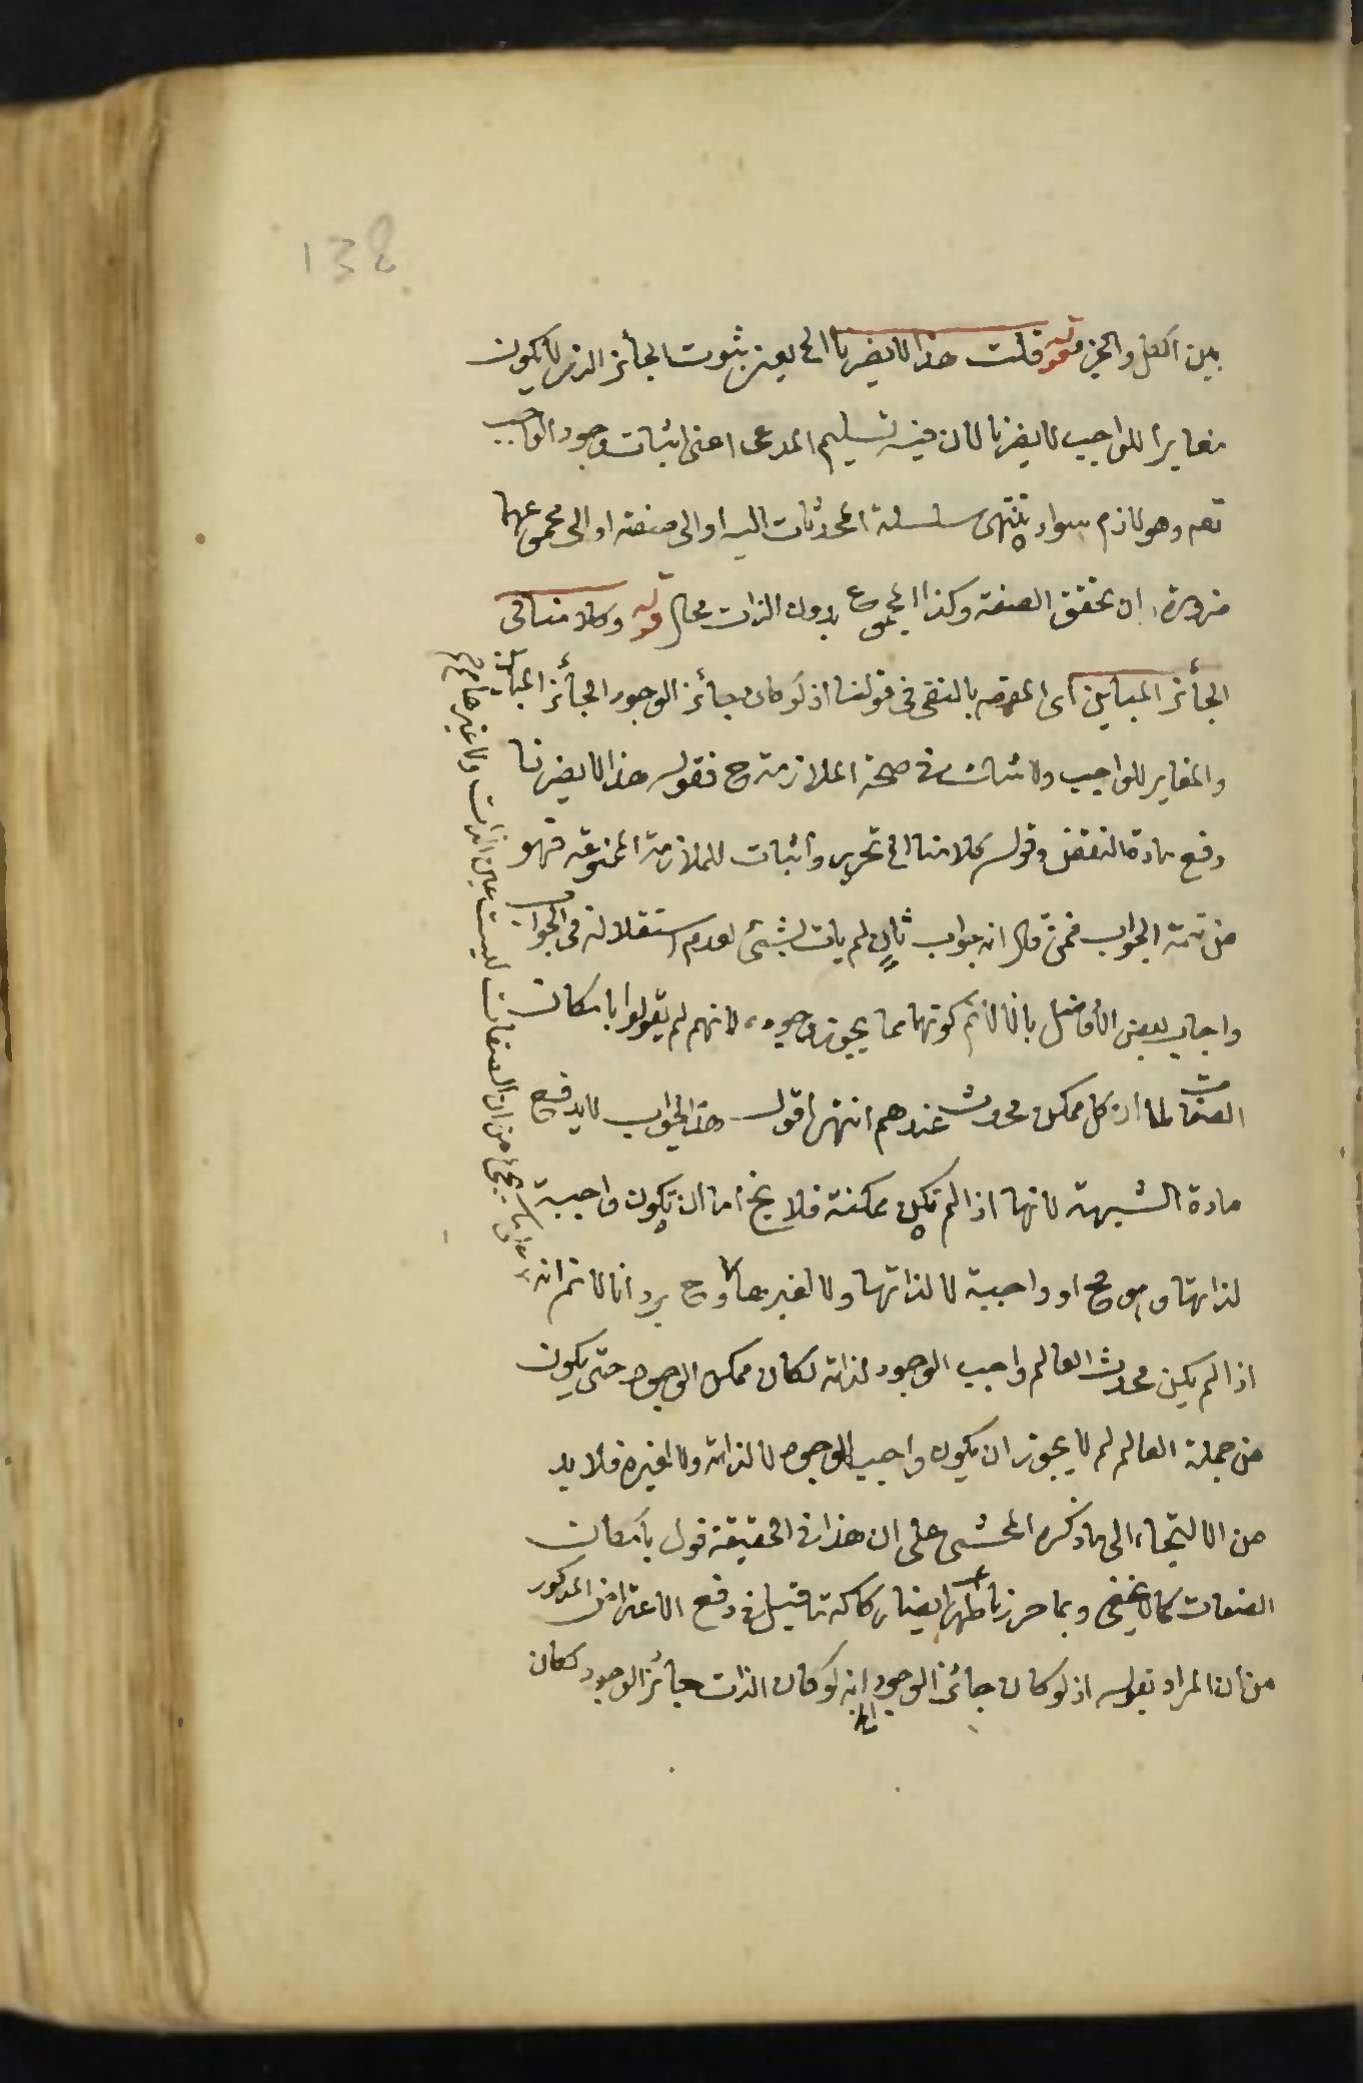 138
بين الكل والجزء قوله قلت هذا لا يضرنا الخ يعني ثبوت الجائز الذي لا يكون
مغايرا للواجب لا يضرنا لان فيه تسليم المدعى اعني اثبات وجود الواجب
تعم وهو لازم سواء ينتهي سلسلة المحدثات اليه او الى صفته او الى مجموعهما
ضرورة ان تحقق الصفة وكذا المجموع بدون الذات محال قوله وكلامنا في
الجائز المباين اى المقص بالنفى في قولنا اذ لو كان جائز الوجود الجائز المباين
والمغاير للواجب ولا شك في صحة الملازمة ح فقوله هذا لا يضرنا
دفع مادة النقض وقوله كلامنا الخ تحرير واثبات للملازمة الممنوعة فهو
من تتمة الجواب فمن قال انه جواب ثان لم يات بشيئ لعدم استقلاله في الجواب
واجاب بعض الأفاضل بانا لا نم كونها مما يجوز وجوده لانهم لم يقولوا بامكان
الصفات لما ان كل ممكن محدث عندهم انتهى اقول هذا الجواب لا يدفع
مادة الشبهة لانها اذا لم تكن ممكنة فلا يخ اما ان يكون واجبة
لذاتها وهو مح او واجبة لا لذاتها ولا لغيرها وح يرد انا لا نم انه
اذا لم يكن محدث العالم واجب الوجود لذاته لكان ممكن الوجود حتى يكون
من جملة العالم لم لا يجوز ان يكون واجب الوجود لا لذاته ولا لغيره فلا بد
من الالتجاء الى ما ذكره المحشى على ان هذا في الحقيقة قول بامكان
الصفات كما لا يخفى وبما حررنا ظهر ايضا ركاكة ما قيل في دفع الاعتراض المذكور
من ان المراد بقوله اذ لو كان جائز الوجود انه لو كان الذات جائز الوجود لكان
من ان الصفات ليست عين الذات ولا غيرها